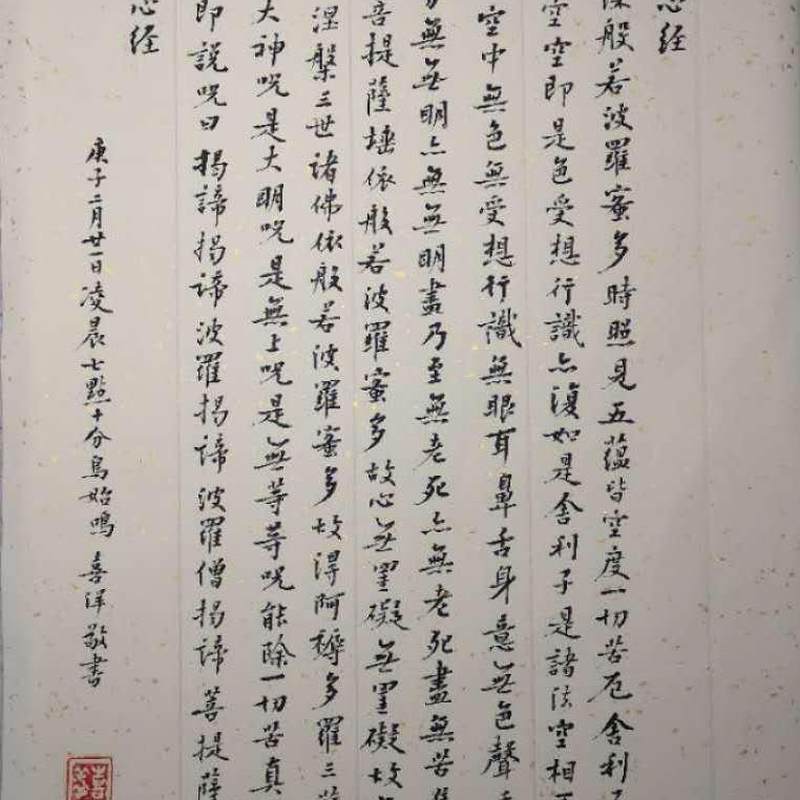 心经
深般若波羅蜜多時照見五蘊皆空度一切苦厄舍利子
空空即是色受想行識亦復如是舍利子是諸法空相不
空中無色無受想行識無眼耳鼻舌身意無色聲香
無無明亦無無明盡乃至無老死亦無老死盡無苦集
菩提薩埵依般若波羅蜜多故心無罣礙無罣礙故
涅槃三世諸佛依般若波羅蜜多故得阿耨多羅三藐
大神咒是大明咒是無上咒是無等等咒能除一切苦真
即說咒曰揭諦揭諦波羅揭諦波羅僧揭諦菩提薩
心经
庚子二月廿一日凌晨七點十分鳥始鳴 喜洋敬書